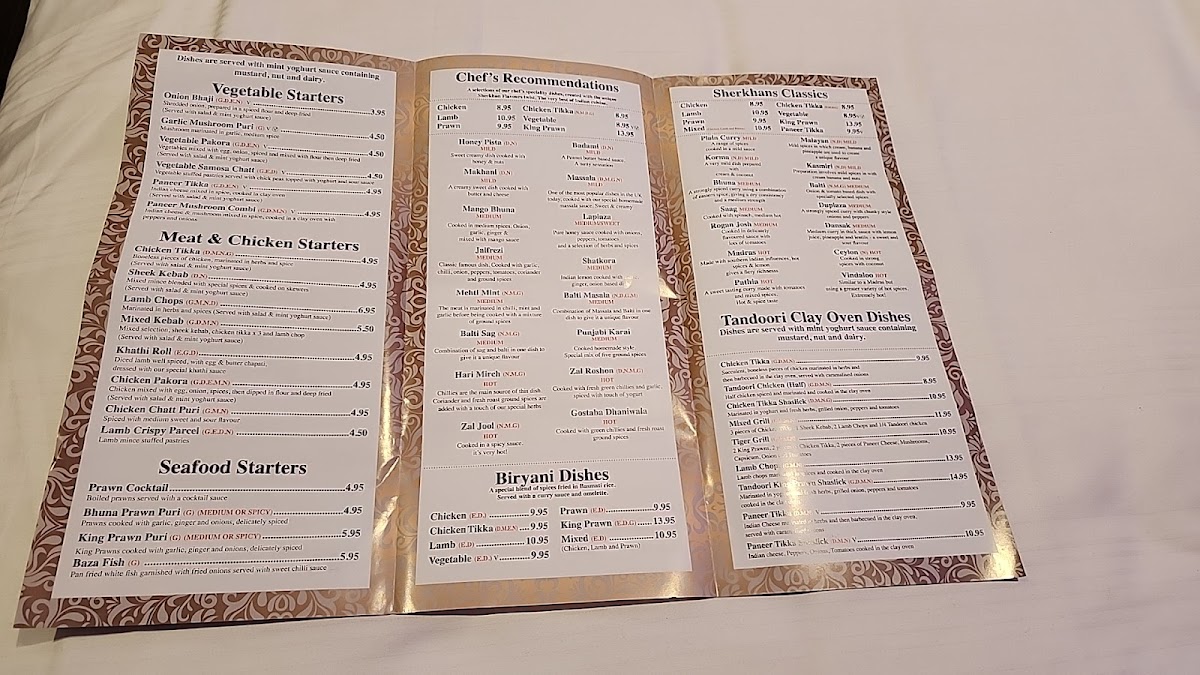 Dishes are served with mint yoghurt sauce containing
mustard, nut and dairy.
Vegetable Starters
Onion Bhaji (G.D.E.N) V 3.95
Shredded onion, prepared in a spiced flour and deep fried
(Served with salad & mint yoghurt sauce)
Garlic Mushroom Puri (G) V 4.50
Mushroom marinated in garlic, medium spice
Vegetable Pakora (G.D.E.N) V 4.50
Vegetables mixed with egg, onion, spiced and mixed with flour then deep fried
(Served with salad & mint yoghurt sauce)
Vegetable Samosa Chatt (G.E.D) V 4.50
Vegetable stuffed pastries served with chick peas topped with yoghurt and sour sauce
Paneer Tikka (G.D.E.N) V 4.95
Indian cheese mixed in spice, cooked in clay oven
(Served with salad & mint yoghurt sauce)
Paneer Mushroom Combi (G.D.M.N) V 4.95
Indian cheese & mushroom mixed in spice, cooked in a clay oven with
peppers and onions
Meat & Chicken Starters
Chicken Tikka (D.M.N.G) 4.95
Boneless pieces of chicken, marinated in herbs and spice
(Served with salad & mint yoghurt sauce)
Sheek Kebab (D.N) 4.95
Mixed mince blended with special spices & cooked on skewers
(Served with salad & mint yoghurt sauce)
Lamb Chops (G.M.N.D) 6.95
Marinated in herbs and spices (Served with salad & mint yoghurt sauce)
Mixed Kebab (G.D.M.N) 5.50
Mixed selection, sheek kebab, chicken tikka x 3 and lamb chop
(Served with salad & mint yoghurt sauce)
Khathi Roll (E.G.D) 4.95
Diced lamb well spiced, with egg & butter chapati,
dressed with our special khathi sauce
Chicken Pakora (G.D.E.M.N) 4.95
Chicken mixed with egg, onion, spices, then dipped in flour and deep fried
(Served with salad & mint yoghurt sauce)
Chicken Chatt Puri (G.M.N) 4.95
Spiced with medium sweet and sour flavour
Lamb Crispy Parcel (G.E.D.N) 4.50
Lamb mince stuffed pastries
Seafood Starters
Prawn Cocktail 4.95
Boiled prawns served with a cocktail sauce
Bhuna Prawn Puri (G) (MEDIUM OR SPICY) 4.95
Prawns cooked with garlic, ginger and onions, delicately spiced
King Prawn Puri (G) (MEDIUM OR SPICY) 5.95
King Prawns cooked with garlic, ginger and onions, delicately spiced
Baza Fish (G) 5.95
Pan fried white fish garnished with fried onions served with sweet chilli sauce
Chef's Recommendations
A selections of our chef's speciality dishes, created with the unique
Sherkhan Flavours twist. The very best of Indian cuisine.
Chicken 8.95
Lamb 10.95
Prawn 9.95
Chicken Tikka 8.95
Vegetable 8.95
King Prawn 13.95
Honey Pista (D.N)
MILD
Sweet creamy dish cooked with
honey & nuts
Makhani (D.N)
MILD
A creamy sweet dish cooked with
butter and cheese
Mango Bhuna
MEDIUM
Cooked in medium spices, Onion,
garlic, ginger &
mixed with mango sauce
Jalfrezi
MEDIUM
Classic famous dish, Cooked with garlic,
chilli, onion, peppers, tomatoes, coriander
and ground spices
Mehti Mint (N.M.G)
MEDIUM
The meat is marinated in chilli, mint and
garlic before being cooked with a mixture
of ground spices
Balti Sag (N.M.G)
MEDIUM
Combination of sag and balti in one dish to
give it a unique flavour
Hari Mirch (N.M.G)
HOT
Chillies are the main source of this dish.
Coriander and fresh roast ground spices are
added with a touch of our special herbs
Zal Jool (N.M.G)
HOT
Cooked in a spicy sauce,
it's very hot!
Badami (D.N)
MILD
A Peanut butter based sauce
A nutty sensation
Massala (D.M.G.N)
MILD
One of the most popular dishes in the UK
today, cooked with our special homemade
massala sauce, Sweet & creamy
Lapiaza
MEDIUM/SWEET
Pure honey sauce cooked with onions,
peppers, tomatoes
and a selection of herbs and spices
Shatkora
MEDIUM
Indian lemon cooked with
ginger, onion based
Balti Masala (N.D.G.M)
MEDIUM
Combination of Massala and Balti in one
dish to give it a unique flavour
Punjabi Karai
MEDIUM
Cooked homemade style
Special mix of five ground spices
Zal Roshon (D.N.M.G)
HOT
Cooked with fresh green chillies and garlic,
spiced with touch of yogurt
Gostaba Dhaniwala
HOT
Cooked with green chillies and fresh roast
ground spices
Biryani Dishes
A special blend of spices fried in Basmati rice.
Served with a curry sauce and omelette.
Chicken (E.D.) 9.95
Chicken Tikka (D.M.E.N) 9.95
Lamb (E.D) 10.95
Vegetable (E.D.) V 9.95
Prawn (E.D) 9.95
King Prawn (E.D.G) 13.95
Mixed (E.D) 10.95
(Chicken, Lamb and Prawn)
Sherkhans Classics
Chicken 8.95
Lamb 10.95
Prawn 9.95
Mixed 10.95
Chicken Tikka 8.95
Vegetable 8.95
King Prawn 13.95
Paneer Tikka 9.95
Plain Curry MILD
A range of spices
cooked in a mild sauce
Korma (N.D) MILD
A very mild dish prepared
with
cream & coconut
Bhuna MEDIUM
A strongly spiced curry using a combination
of eastern spice, giving a dry consistency
and a medium strength
Saag MEDIUM
Cooked with spinach, medium hot
Rogan Josh MEDIUM
Cooked in delicately
flavoured sauce with
lots of tomatoes
Madras HOT
Made with southern Indian influences, hot
spices & lemon,
gives a fiery richness
Pathia HOT
A sweet tasting curry made with tomatoes
and mixed spices.
Hot & spice taste
Malayan (N.D) MILD
Mild spices in which cream, banana and
pineapple are used to create
a unique flavour
Kasmiri (N.D) MILD
Preparation involves mild spices in with
cream banana and nuts
Balti (N.M.G) MEDIUM
Onion & tomato based dish with
specially selected spices
Dupiaza MEDIUM
A strongly spiced curry with chunky style
onions and peppers
Dansak MEDIUM
Medium curry in thick sauce with lemon
juice, pineapple and lentils - a sweet and
sour flavour
Ceylon (N) HOT
Cooked in strong
spices with coconut
Vindaloo HOT
Similar to a Madras but
using a greater variety of hot spices.
Extremely hot!
Tandoori Clay Oven Dishes
Dishes are served with mint yoghurt sauce containing
mustard, nut and dairy.
Chicken Tikka (G.D.M.N) 9.95
Succulent, boneless pieces of chicken marinated in herbs and
then barbecued in the clay oven, served with caramalised onions
Tandoori Chicken (Half) (G.D.M.N) 8.95
Half chicken spiced and marinated and cooked in the clay oven
Chicken Tikka Shaslick (D.M.N.G) 10.95
Marinated in yoghurt and fresh herbs, grilled onion, peppers and tomatoes
Mixed Grill 11.95
3 pieces of Chicken Sheek Kebab, 2 Lamb Chops and 1/4 Tandoori chicken
Tiger Grill 10.95
2 King Prawns, 2 Chicken Tikka, 2 pieces of Paneer Cheese, Mushrooms,
Capsicum, Onion
Lamb Chops 13.95
Lamb chops spices and cooked in the clay oven
Tandoori King Prawn Shaslick (G.D.M.N) 14.95
Marinated in herbs, grilled onion, peppers and tomatoes
cooked in the clay
Paneer Tikka V 9.95
Indian Cheese herbs and then barbecued in the clay oven,
served with onions
Paneer Tikka Shaslick (D.M.N) V 10.95
Indian cheese, Peppers, Onions, Tomatoes cooked in the clay oven